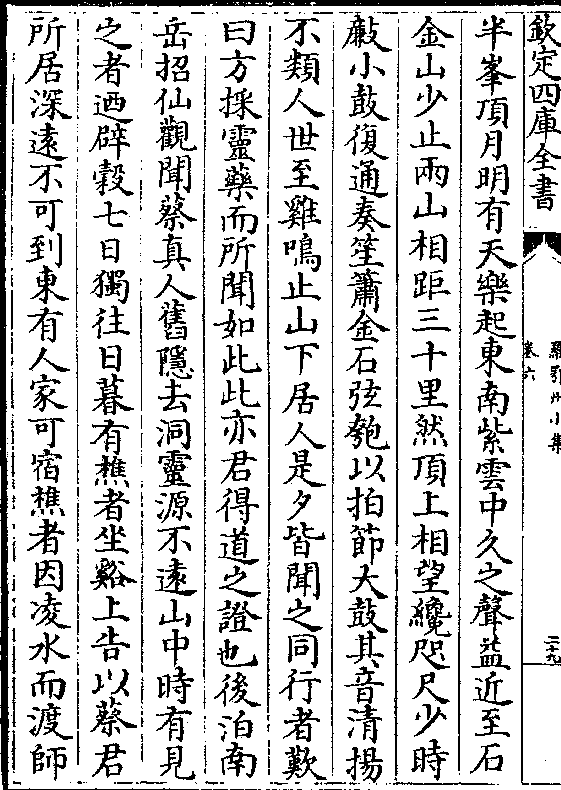 欽定四庫全書
羅鄂州小集
卷六
二十九
半峯頂月明有天樂起東南紫雲中久之聲益近至石
金山少止兩山相距三十里然頂上相望纔咫尺少時
敲小鼓復通奏笙簫金石弦匏以拍節大鼓其音清揚
不類人世至雞鳴止山下居人是夕皆聞之同行者歎
曰方採靈藥而所聞如此此亦君得道之證也後泊南
岳招仙觀聞蔡真人舊隱去洞靈源不遠山中時有見
之者迺辟穀七日獨往日暮有樵者坐谿上告以蔡君
所居深遠不可到東有人家可宿樵者因凌水而渡師